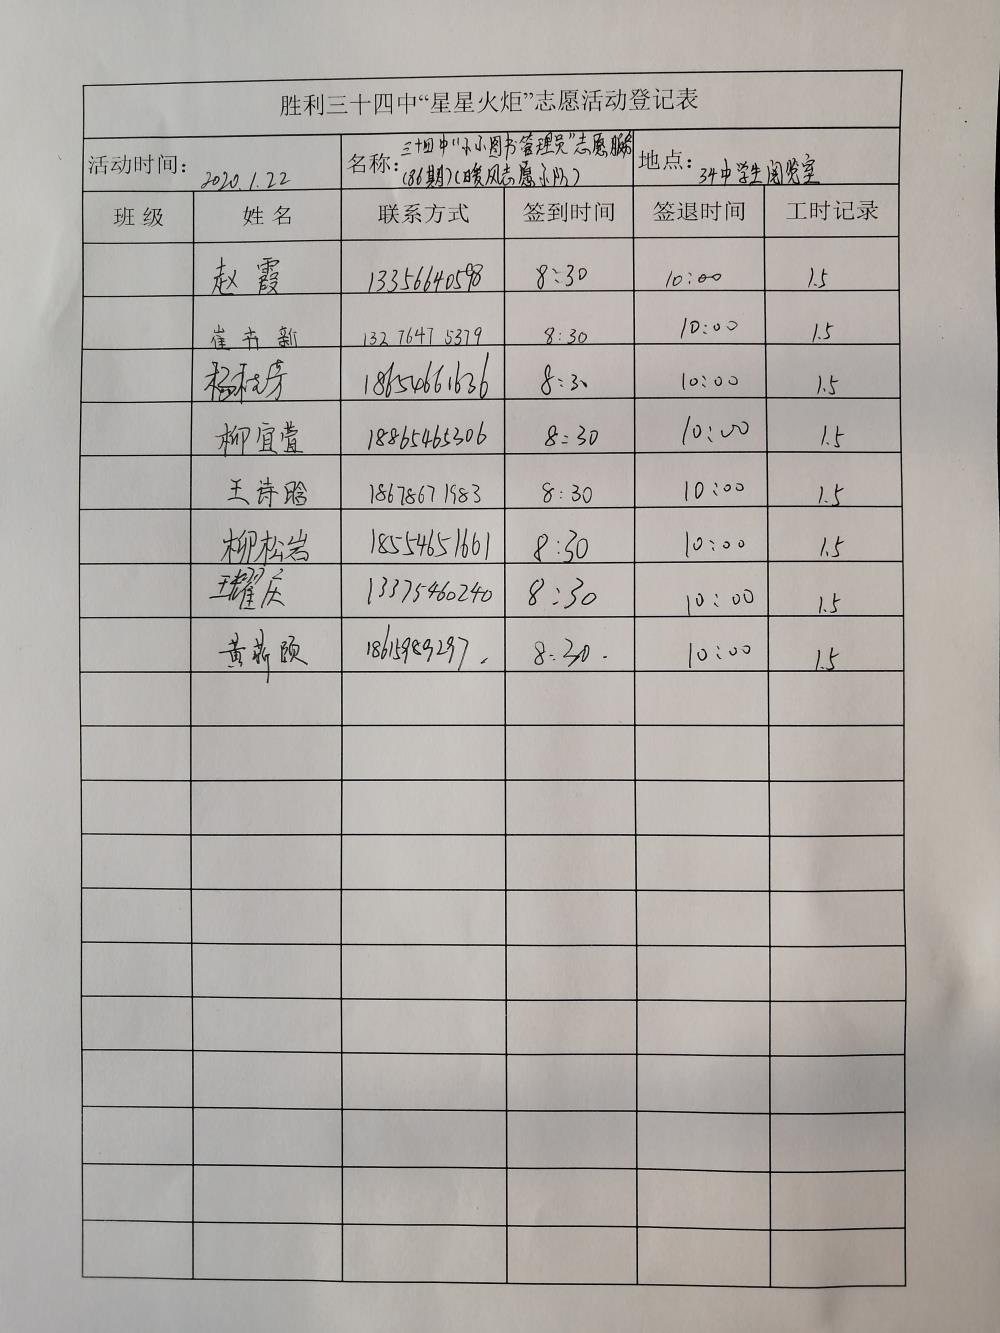 胜利三十四中“星星火炬”志愿活动登记表
活动时间： 2020.1.22 名称：三十四中“小小图书管理员”志愿服务(86期)(暖风志愿小队) 地点： 34中学生阅览室
班 级 姓 名 联系方式 签到时间 签退时间 工时记录
赵霞 13356640598 8:30 10:00 1.5
崔卉新 132 7647 5379 8:30 10:00 1.5
杨桂芳 18654661636 8:30 10:00 1.5
柳宜萱 18865465306 8:30 10:00 1.5
王诗晗 18678671983 8:30 10:00 1.5
柳松岩 18554651661 8:30 10:00 1.5
王耀庆 13375460240 8:30 10:00 1.5
黄薪颐 18615989297. 8:30. 10:00 1.5